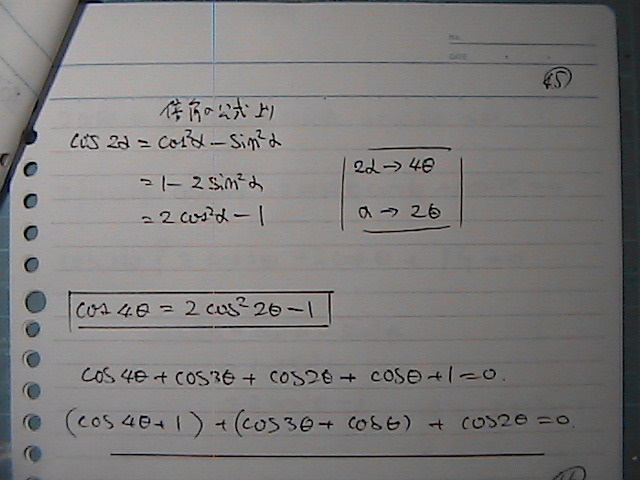 No.
DATE
45
倍角の公式より
cos 2α = cos²α − sin²α
= 1 − 2 sin²α
= 2 cos²α − 1
2α → 4θ
α → 2θ
cos 4θ = 2 cos² 2θ − 1
cos 4θ + cos 3θ + cos 2θ + cos θ + 1 = 0.
(cos 4θ + 1) + (cos 3θ + cos θ) + cos 2θ = 0.